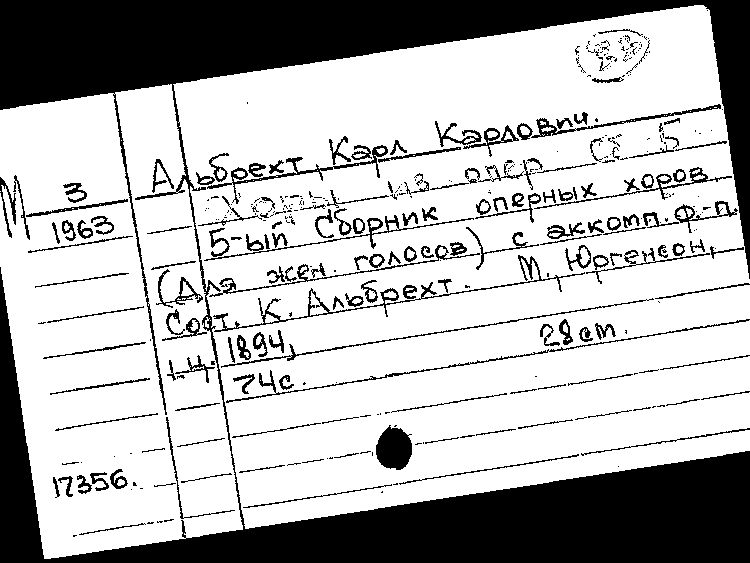 Альбрехт, Карл Карлович.
М 3
1963
Хоры из опер Сб 5
5-ый Сборник оперных хоров.
(Для жен. голосов) с аккомп. ф.-п.
Сост. К. Альбрехт. М., Юргенсон,
1894,
74 с. 28 cm.
17356.